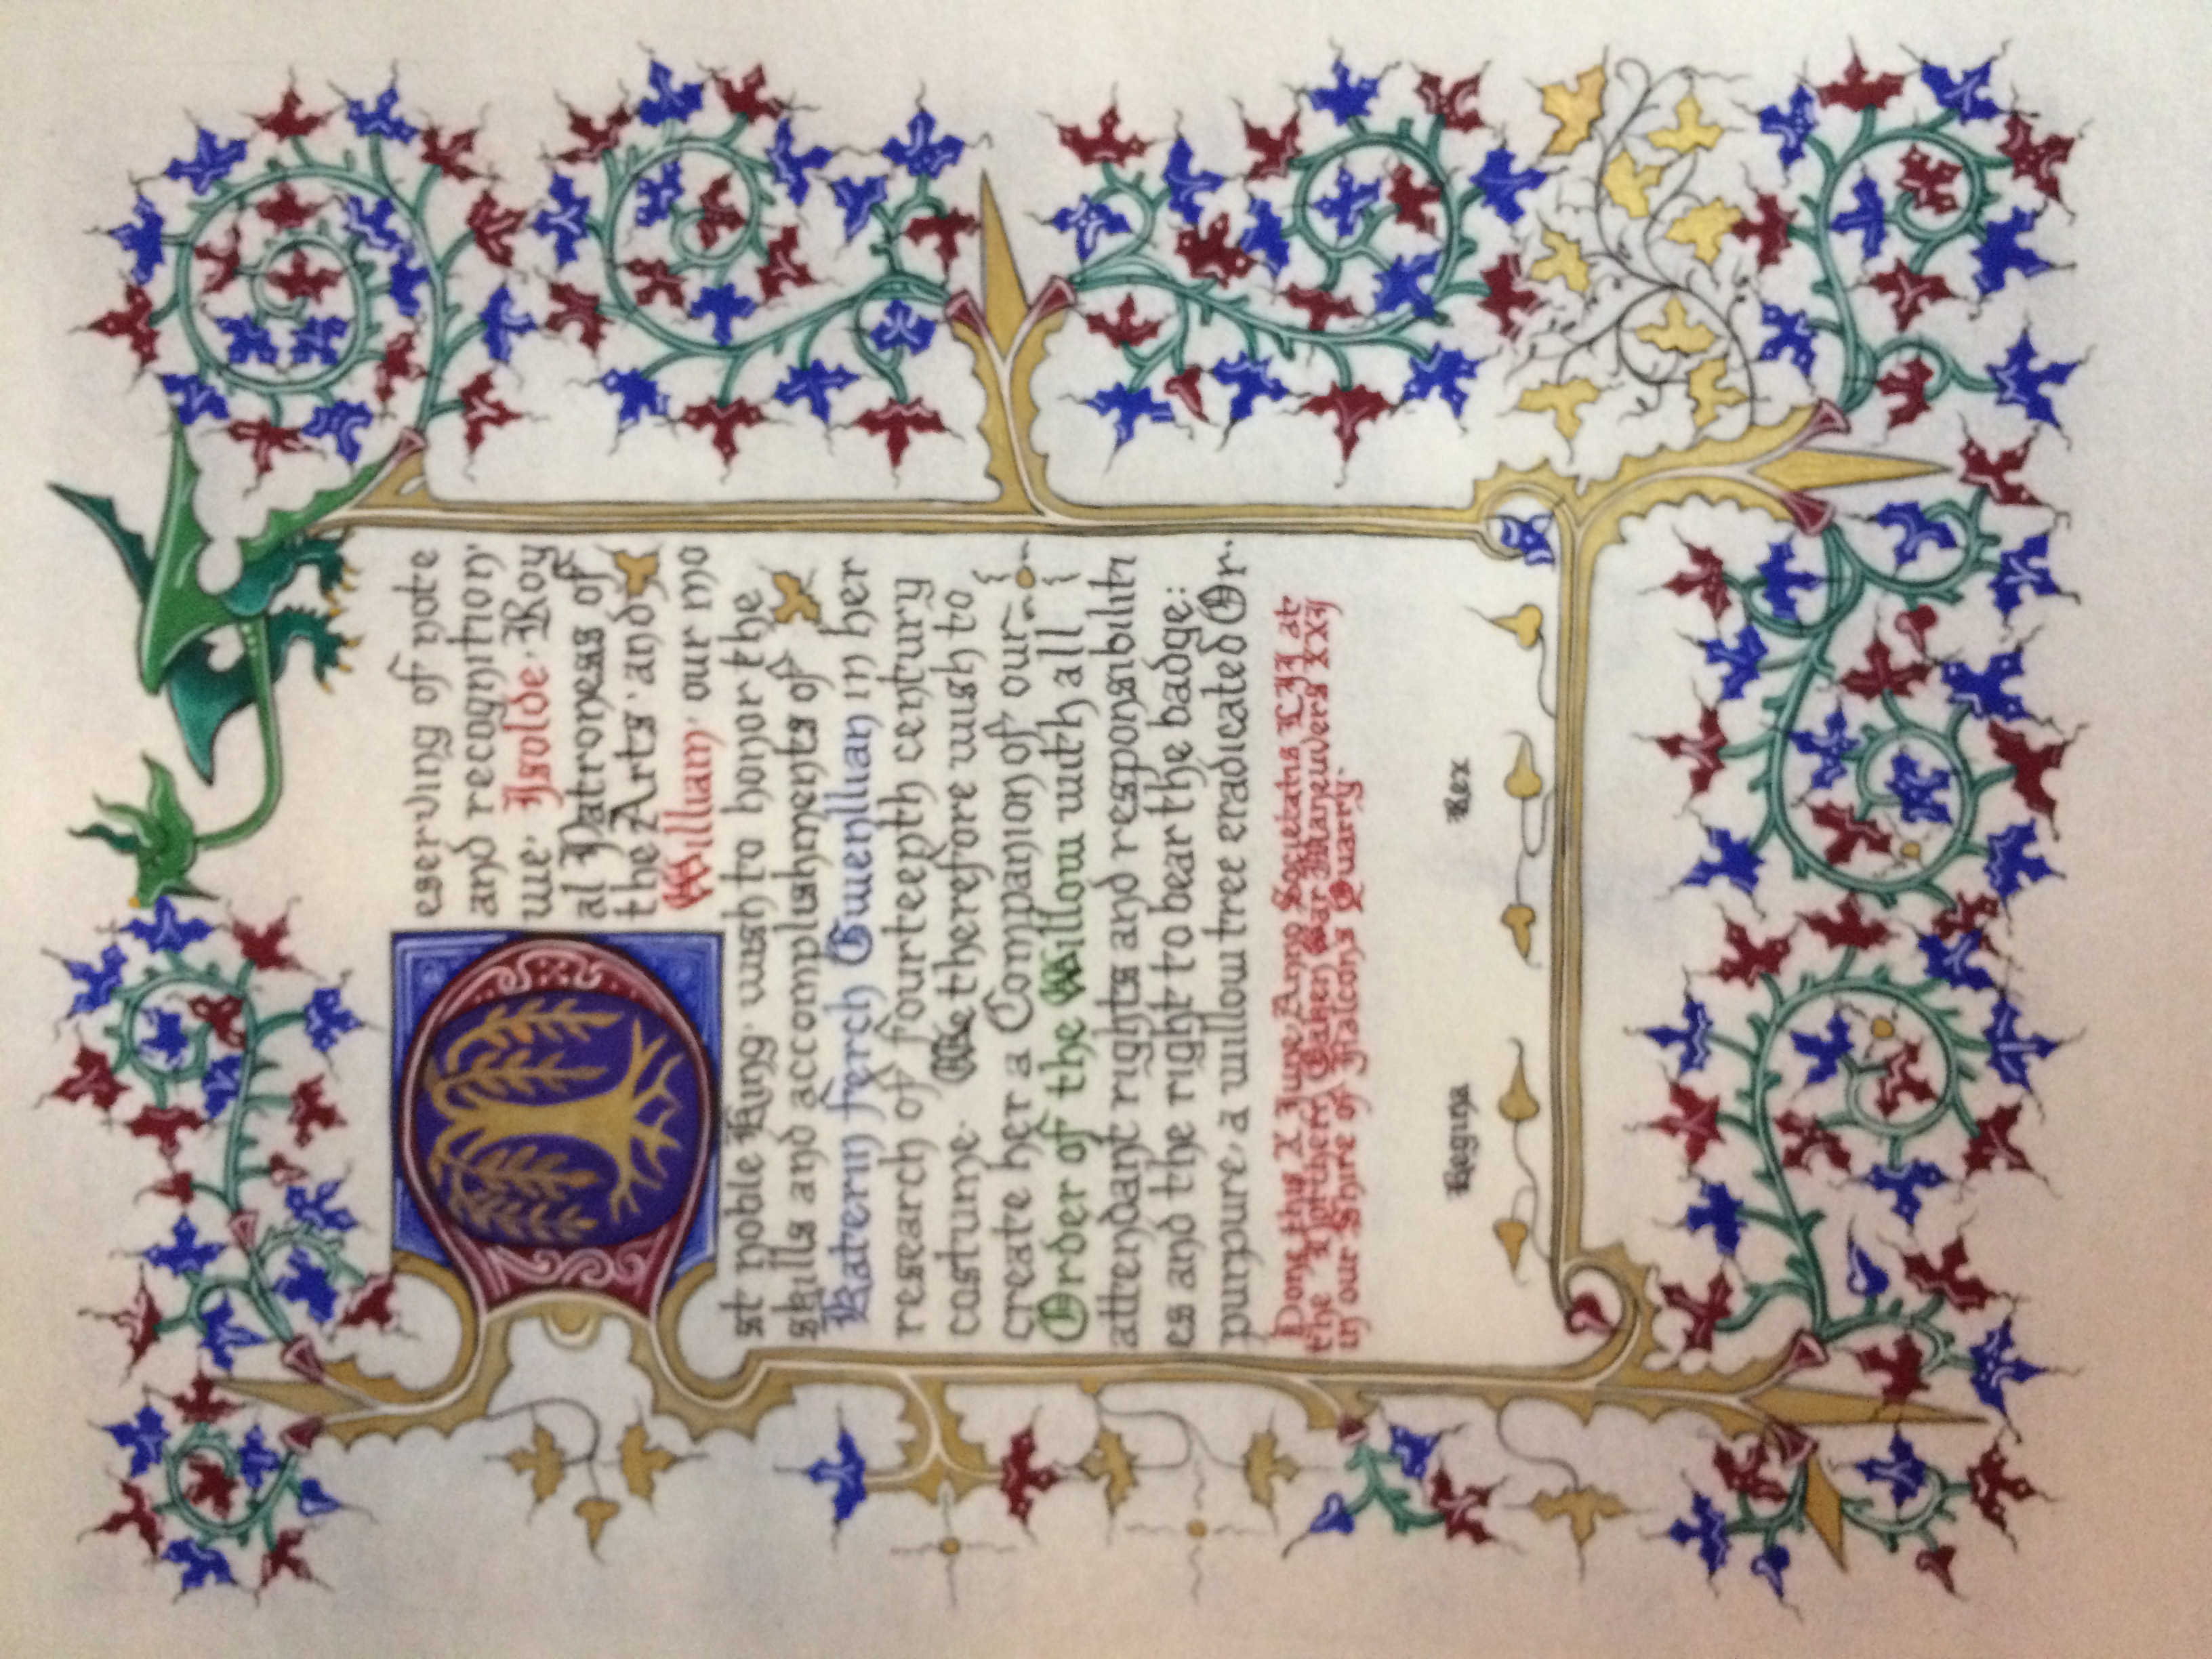 Deserving of note
and recognition
we · Isolde · Roy
al Patroness of
the Arts · and
William, our mo
st noble King · wish to honor the
skills and accomplishments of
Katerin ferch Gwenllian in her
research of fourteenth century
costume · We therefore wish to
create her a Companion of our
Order of the Willow with all
attendant rights and responsibiliti
es and the right to bear the badge:
purpure, a willow tree eradicated Or.
Done this X June Anno Societatis LII at
the Northern War Maneuvers xxx
in our Shire of Falcons Quarry.
Regina Rex